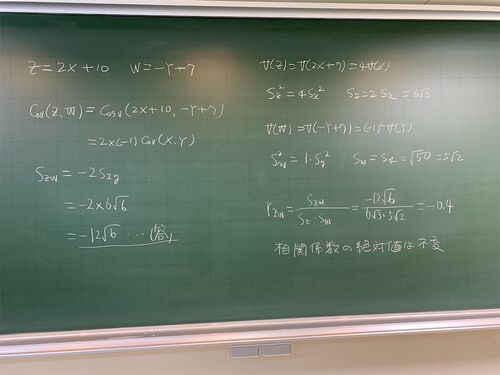 Z=2X+10 W=-Y+7
Cov(Z,W)=Cosv(2X+10,-Y+7)
=2×(-1)Cov(X,Y)
Szw=-2Sxy
=-2×6√6
=-12√6 … (答)
V(Z)=V(2X+7)=4V(X)
Sz²=4Sx² Sz=2Sx=6√3
V(W)=V(-Y+7)=(-1)²V(Y)
Sw²=1・Sy² Sw=Sy=√50=5√2
rzw=Szw/(Sz・Sw)=-12√6/(6√3・5√2)=-0.4
相関係数の絶対値は不変